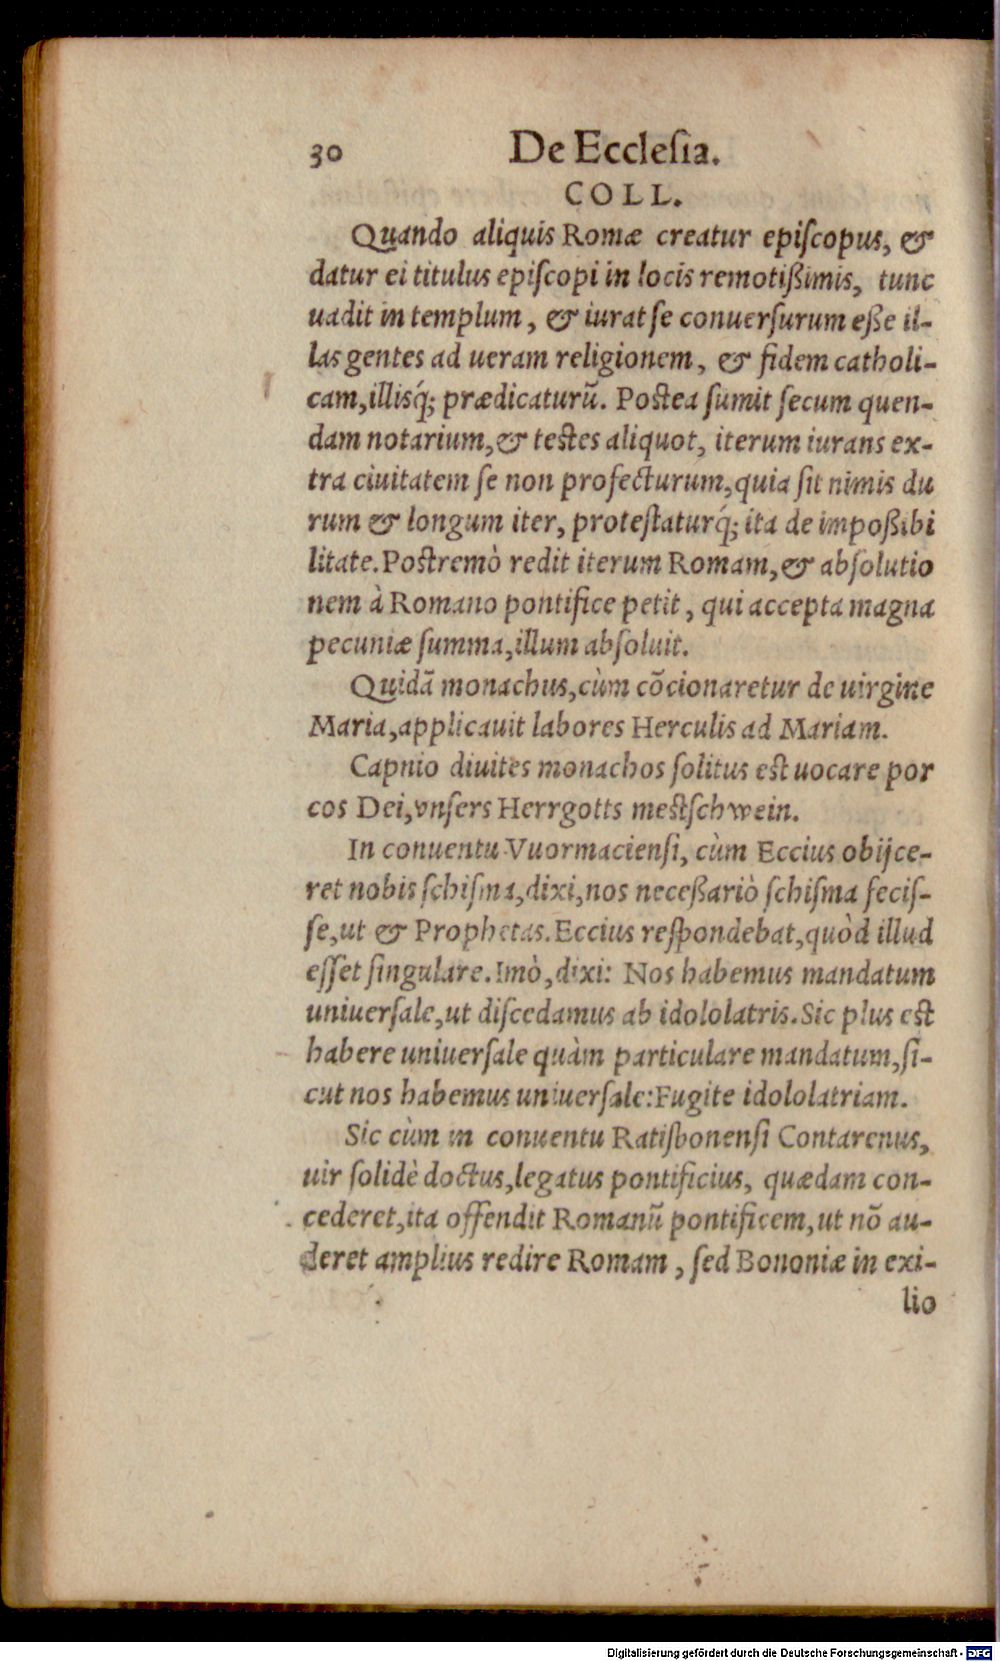 30 De Eccleſia.
COLL.
Quando aliquis Romæ creatur epiſcopus, &
datur ei titulus epiſcopi in locis remotißimis, tunc
uadit in templum, & iurat ſe conuerſurum eße il-
las gentes ad ueram religionem, & fidem catholi-
cam, illisq́; prædicaturũ. Poſtea ſumit ſecum quen-
dam notarium, & teſtes aliquot, iterum iurans ex-
tra ciuitatem ſe non profecturum, quia ſit nimis du
rum & longum iter, proteſtaturq́; ita de impoßibi
litate. Poſtremò redit iterum Romam, & abſolutio
nem à Romano pontifice petit, qui accepta magna
pecuniæ ſumma, illum abſoluit.
Quidã monachus, cùm cõcionaretur de uirgine
Maria, applicauit labores Herculis ad Mariam.
Capnio diuites monachos ſolitus eſt uocare por
cos Dei, vnſers Herrgotts meſtſchwein.
In conuentu Vuormacienſi, cùm Eccius obijce-
ret nobis ſchiſma, dixi, nos neceßariò ſchiſma feciſ-
ſe, ut & Prophetas. Eccius reſpondebat, quòd illud
eſſet ſingulare. Imò, dixi: Nos habemus mandatum
uniuerſale, ut diſcedamus ab idololatris. Sic plus eſt
habere uniuerſale quàm particulare mandatum, ſi-
cut nos habemus uniuerſale: Fugite idololatriam.
Sic cùm in conuentu Ratiſbonenſi Contarenus,
uir ſolidè doctus, legatus pontificius, quædam con-
cederet, ita offendit Romanũ pontificem, ut nõ au-
deret amplius redire Romam, ſed Bononiæ in exi-
lio
Digitalisierung gefördert durch die Deutsche Forschungsgemeinschaft - DFG